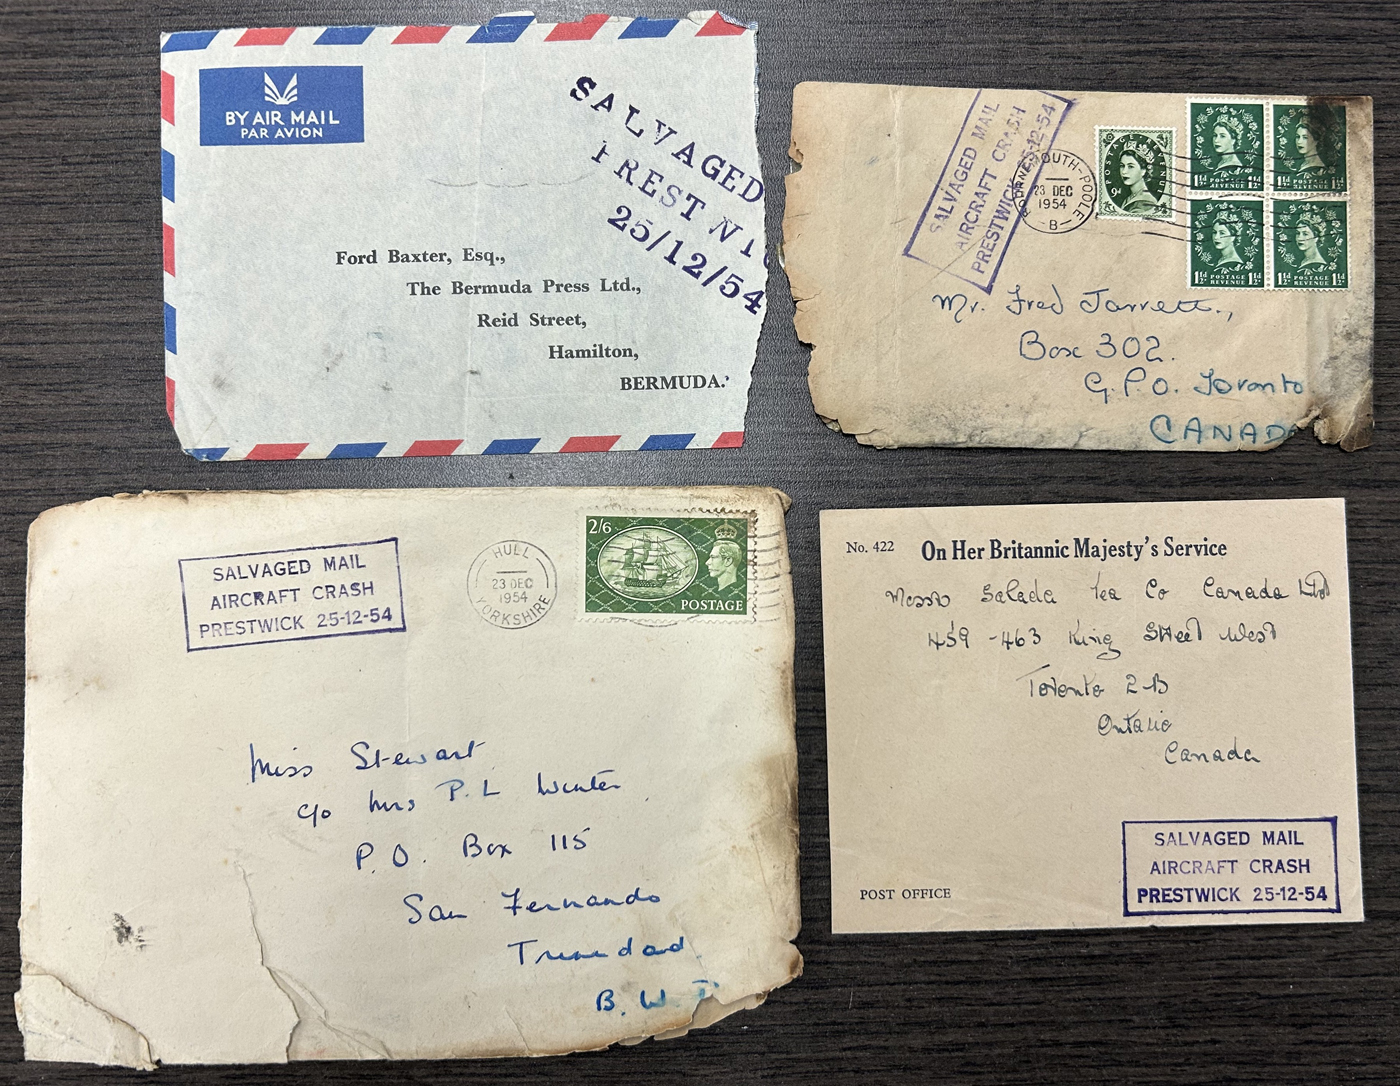 BY AIR MAIL
PAR AVION
SALVAGED
PREST
25/12/54
Ford Baxter, Esq.,
The Bermuda Press Ltd.,
Reid Street,
Hamilton,
BERMUDA.
SALVAGED MAIL
AIRCRAFT CRASH
PRESTWICK 25-12-54
BOURNEMOUTH-POOLE
23 DEC
1954
-B-
POSTAGE REVENUE
9d
1½d POSTAGE REVENUE 1½d
1½d POSTAGE REVENUE 1½d
1½d POSTAGE REVENUE 1½d
1½d POSTAGE REVENUE 1½d
Mr. Fred Jarrett.,
Box 302.
G.P.O. Toronto
CANADA
SALVAGED MAIL
AIRCRAFT CRASH
PRESTWICK 25-12-54
HULL
23 DEC
1954
YORKSHIRE
2/6
POSTAGE
Miss Stewart
c/o Mrs P.L Winter
P.O. Box 115
San Fernando
Trinidad
B.W.I
No. 422 On Her Britannic Majesty's Service
Messrs Salada Tea Co Canada Ltd
459-463 King Street West
Toronto 2-B
Ontario
Canada
SALVAGED MAIL
AIRCRAFT CRASH
PRESTWICK 25-12-54
POST OFFICE